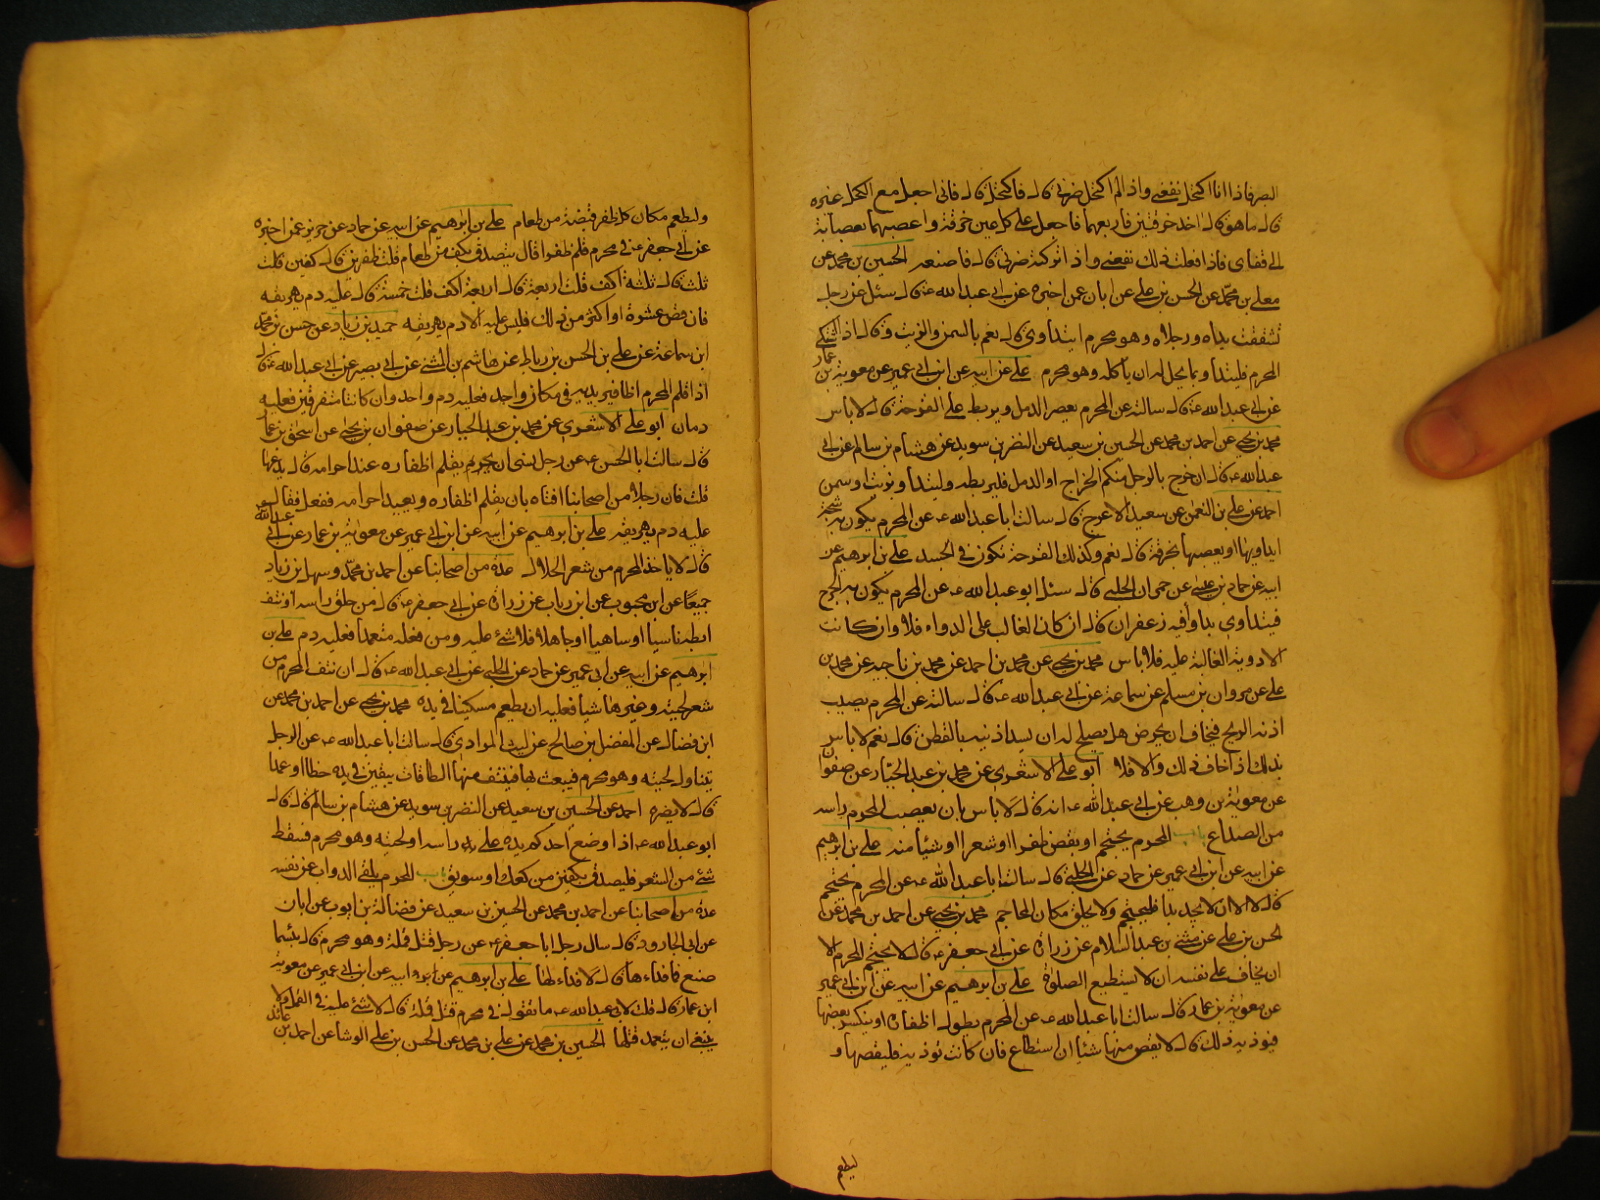 البصر فاذا انا اكتحلت نفعنى واذا لم اكتحل ضرنى قال فاكتحل قال فانى اجعل مع الكحل غيره
قال ما هو قال اخذ خرقتين فاربعهما فاجعل على كل عين خرقة واعصبهما بعصابة
الى قفاى فاذا فعلت ذلك نفعنى واذا تركته ضرنى قال فاصنعه الحسين بن محمد عن
معلى بن محمد عن الحسن بن على عن ابان عمن اخبره عن ابى عبد الله ع قال سئل عن رجل
تشققت يداه ورجلاه وهو محرم ايتداوى قال نعم بالسمن والزيت وقال اذا اشتكى
المحرم فليتداو بما يحل له ان ياكله وهو محرم على عن ابيه عن ابن ابى عمير عن معوية بن عمار
عن ابى عبد الله ع قال سالته عن المحرم يعصر الدمل ويربط على القرحة قال لا باس
محمد بن يحيى عن احمد بن محمد عن الحسين بن سعيد عن النضر بن سويد عن هشام بن سالم عن ابى
عبد الله ع قال ان خرج بالرجل منكم الخراج او الدمل فليربطه وليتداو بزيت او سمن
احمد عن على بن النعمن عن سعيد الاعرج قال سالت ابا عبد الله ع عن المحرم يكون به شجة
ايداويها او يعصبها بخرقة قال نعم وكذلك القرحة تكون فى الجسد على بن ابرهيم عن
ابيه عن حماد بن عيسى عن عمران الحلبى قال سئل ابو عبد الله ع عن المحرم يكون به الجرح
فيتداوى بدواء فيه زعفران قال ان كان الغالب على الدواء فلا وان كانت
الادوية الغالبة عليه فلا باس محمد بن يحيى عن محمد بن احمد عن محمد بن ناجيه عن محمد بن
على عن مروان بن مسلم عن سماعة عن ابى عبد الله ع قال سالته عن المحرم يصيب
اذنه الريح فيخاف ان يمرض هل يصلح له ان يسد اذنيه بالقطن قال نعم لا باس
بذلك اذا خاف ذلك والا فلا ابو على الاشعرى عن محمد بن عبد الجبار عن صفوان
عن معوية بن وهب عن ابى عبد الله ع انه قال لا باس بان يعصب المحرم راسه
من الصداع باب المحرم يحتجم او يقص ظفرا او شعرا او شيئا منه على بن ابرهيم
عن ابيه عن ابن ابى عمير عن حماد عن الحلبى قال سالت ابا عبد الله ع عن المحرم يحتجم
قال لا الا ان لا يجد بدا فليحتجم ولا يحلق مكان المحاجم محمد بن يحيى عن احمد بن محمد عن
الحسن بن على عن مثنى بن عبد السلام عن زرارة عن ابى جعفر ع قال لا يحتجم المحرم الا
ان يخاف على نفسه ان لا يستطيع الصلوة على بن ابرهيم عن ابيه عن ابن ابى عمير
عن معوية بن عمار قال سالت ابا عبد الله ع عن المحرم يطول اظفاره او ينكسر بعضها
فيوذيه ذلك قال لا يقص منها شيئا ان استطاع فان كانت توذيه فليقصها و
ليطعم
وليطعم مكان كل ظفر قبضة من طعام على بن ابرهيم عن ابيه عن حماد عن حريز عمن اخبره
عن ابى جعفر ع فى محرم قلم ظفرا قال يتصدق بكف من طعام قلت ظفرين قال كفين قلت
ثلثة قال ثلثة اكف قلت اربعة قال اربعة اكف قلت خمسة قال عليه دم يهريقه
فان قص عشرة او اكثر من ذلك فليس عليه الا دم يهريقه حميد بن زياد عن حسن بن محمد
ابن سماعة عن على بن الحسن بن رباط عن هاشم بن المثنى عن ابى بصير عن ابى عبد الله ع قال
اذا قلم المحرم اظافير يديه فى مكان واحد فعليه دم واحد وان كانتا متفرقتين فعليه
دمان ابو على الاشعرى عن محمد بن عبد الجبار عن صفوان بن يحيى عن اسحق بن عمار
قال سالت ابا الحسن ع عن رجل نسى ان يحرم يقلم اظفاره عند احرامه قال يدعها
قلت فان رجلا من اصحابنا افتاه بان يقلم اظفاره ويعيد احرامه ففعل فقال
عليه دم يهريقه على بن ابرهيم عن ابيه عن ابن ابى عمير عن معوية بن عمار عن ابى عبد الله ع
قال لا ياخذ المحرم من شعر الحلال عدة من اصحابنا عن احمد بن محمد وسهل بن زياد
جميعا عن ابن محبوب عن ابن رياب عن زرارة عن ابى جعفر ع قال من حلق راسه او نتف
ابطه ناسيا او ساهيا او جاهلا فلا شئ عليه ومن فعله متعمدا فعليه دم على بن
ابرهيم عن ابيه عن ابى عمير عن حماد عن الحلبى عن ابى عبد الله ع قال ان نتف المحرم من
شعر لحيته وغيرها شيئا فعليه ان يطعم مسكينا فى يده محمد بن يحيى عن احمد بن محمد عن
ابن فضال عن المفضل بن صالح عن ليث المرادى قال سالت ابا عبد الله ع عن الرجل
يتناول لحيته وهو محرم فيعبث بها فينتف منها الطاقات يبقين فى يده خطا او عمدا
قال لا يضره احمد عن الحسين بن سعيد عن النضر بن سويد عن هشام بن سالم قال قال
ابو عبد الله ع اذا وضع احدكم يده على راسه او لحيته وهو محرم فسقط
شئ من الشعر فليصدق بكفين من كعك او سويق باب المحرم يلقى الدواب عن نفسه
عدة من اصحابنا عن احمد بن محمد عن الحسين بن سعيد عن فضالة بن ايوب عن ابان
عن ابى الجارود قال سال رجل ابا جعفر ع عن رجل قتل قملة وهو محرم قال بئسما
صنع قال فما فداءها قال لا فداء لها على بن ابرهيم عن ابيه عن ابن ابى عمير عن معوية
ابن عمار قال قلت لابى عبد الله ع ما تقول فى محرم قتل قملة قال لا شئ عليه فى القمل ولا
ينبغى ان يتعمد قتلها الحسين بن محمد عن على بن محمد عن الحسن بن على الوشا عن احمد بن عائذ